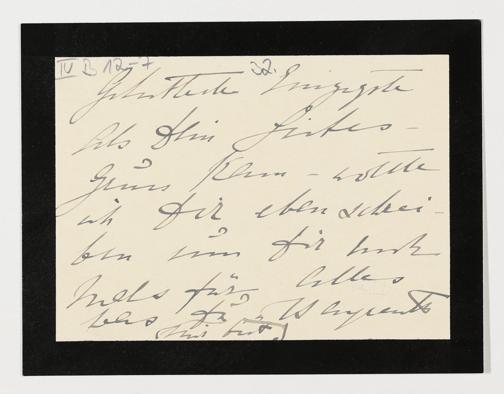 IV B 12-7 32.
Geliebteste Einzigste
als Dein Liebes-
gruss kam - wollte
ich Dir eben schrei-
ben um Dir noch-
mals für alles
was Du
mir bist